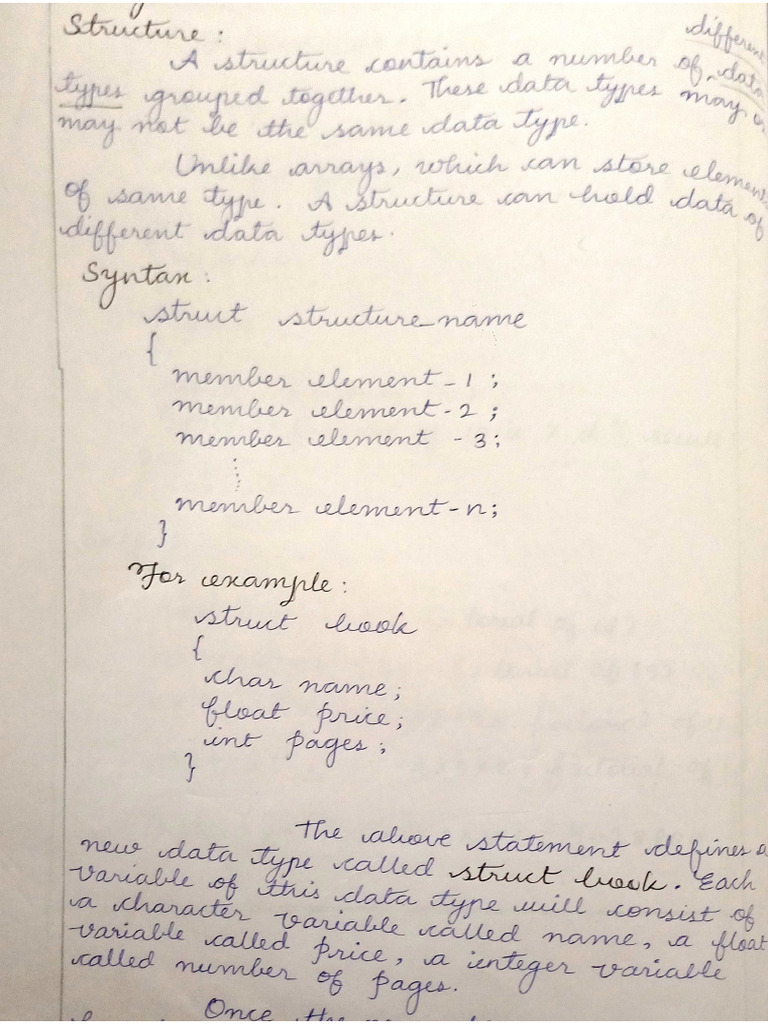 Structure :
A structure contains a number of different data
types grouped together. These data types may or
may not be the same data type.
Unlike arrays, which can store elements
of same type. A structure can hold data of
different data types.
Syntax :
struct structure_name
{
member element - 1 ;
member element - 2 ;
member element - 3 ;
⋮
member element - n;
}
For example :
struct book
{
char name;
float price;
int pages;
}
The above statement defines a
new data type called struct book. Each
variable of this data type will consist of
a character variable called name, a float
variable called price, a integer variable
called number of pages.
Once the